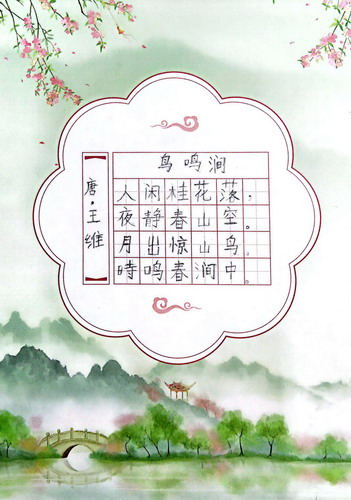 鸟鸣涧
唐·王维
人闲桂花落，
夜静春山空。
月出惊山鸟，
時鸣春涧中。